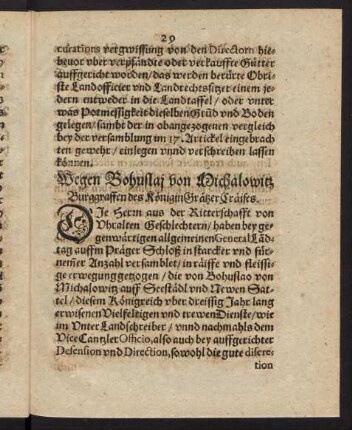 29
curations vergwissung von den Directorn hie-
beuor vber verpfändte oder verkauffte Gütter
auffgericht worden / das werden berürte Obri-
ste Landofficirer vnd Landrechtssitzer einem je-
dern entweder in die Landtaffel / oder vnter
was Potmessigkeit dieselben Gründ vnd Boden
gelegen / sambt der in obangezogenen vergleich
bey der versamblung im 17. Artickel eingebrach-
ten gewehr / einlegen vnnd verschreiben lassen
können.
Wegen Bohuslaj von Michalowitz
Burggraffen des Königin Grätzer Craises.
DIe Herrn aus der Ritterschafft von
Vhralten Geschlechtern / haben bey ge-
genwärtigen allgemeinen General Länd-
tag auffm Präger Schloß in starcker vnd für-
nemer Anzahl versamblet / in räiffe vnd fleissi-
ge erwegung gezogen / die von Bohuslao von
Michalowitz auff Seestädl vnd Newen Sat-
tel / diesem Königreich vber dreissig Jahr lang
erwisenen Vielfeltigen vnd trewen Dienste / wie
im Vnter Landschreiber / vnnd nachmahls dem
Vice Cantzler Officio, also auch bey auffgerichter
Defension vnd Direction, sowohl die gute discre-
tion